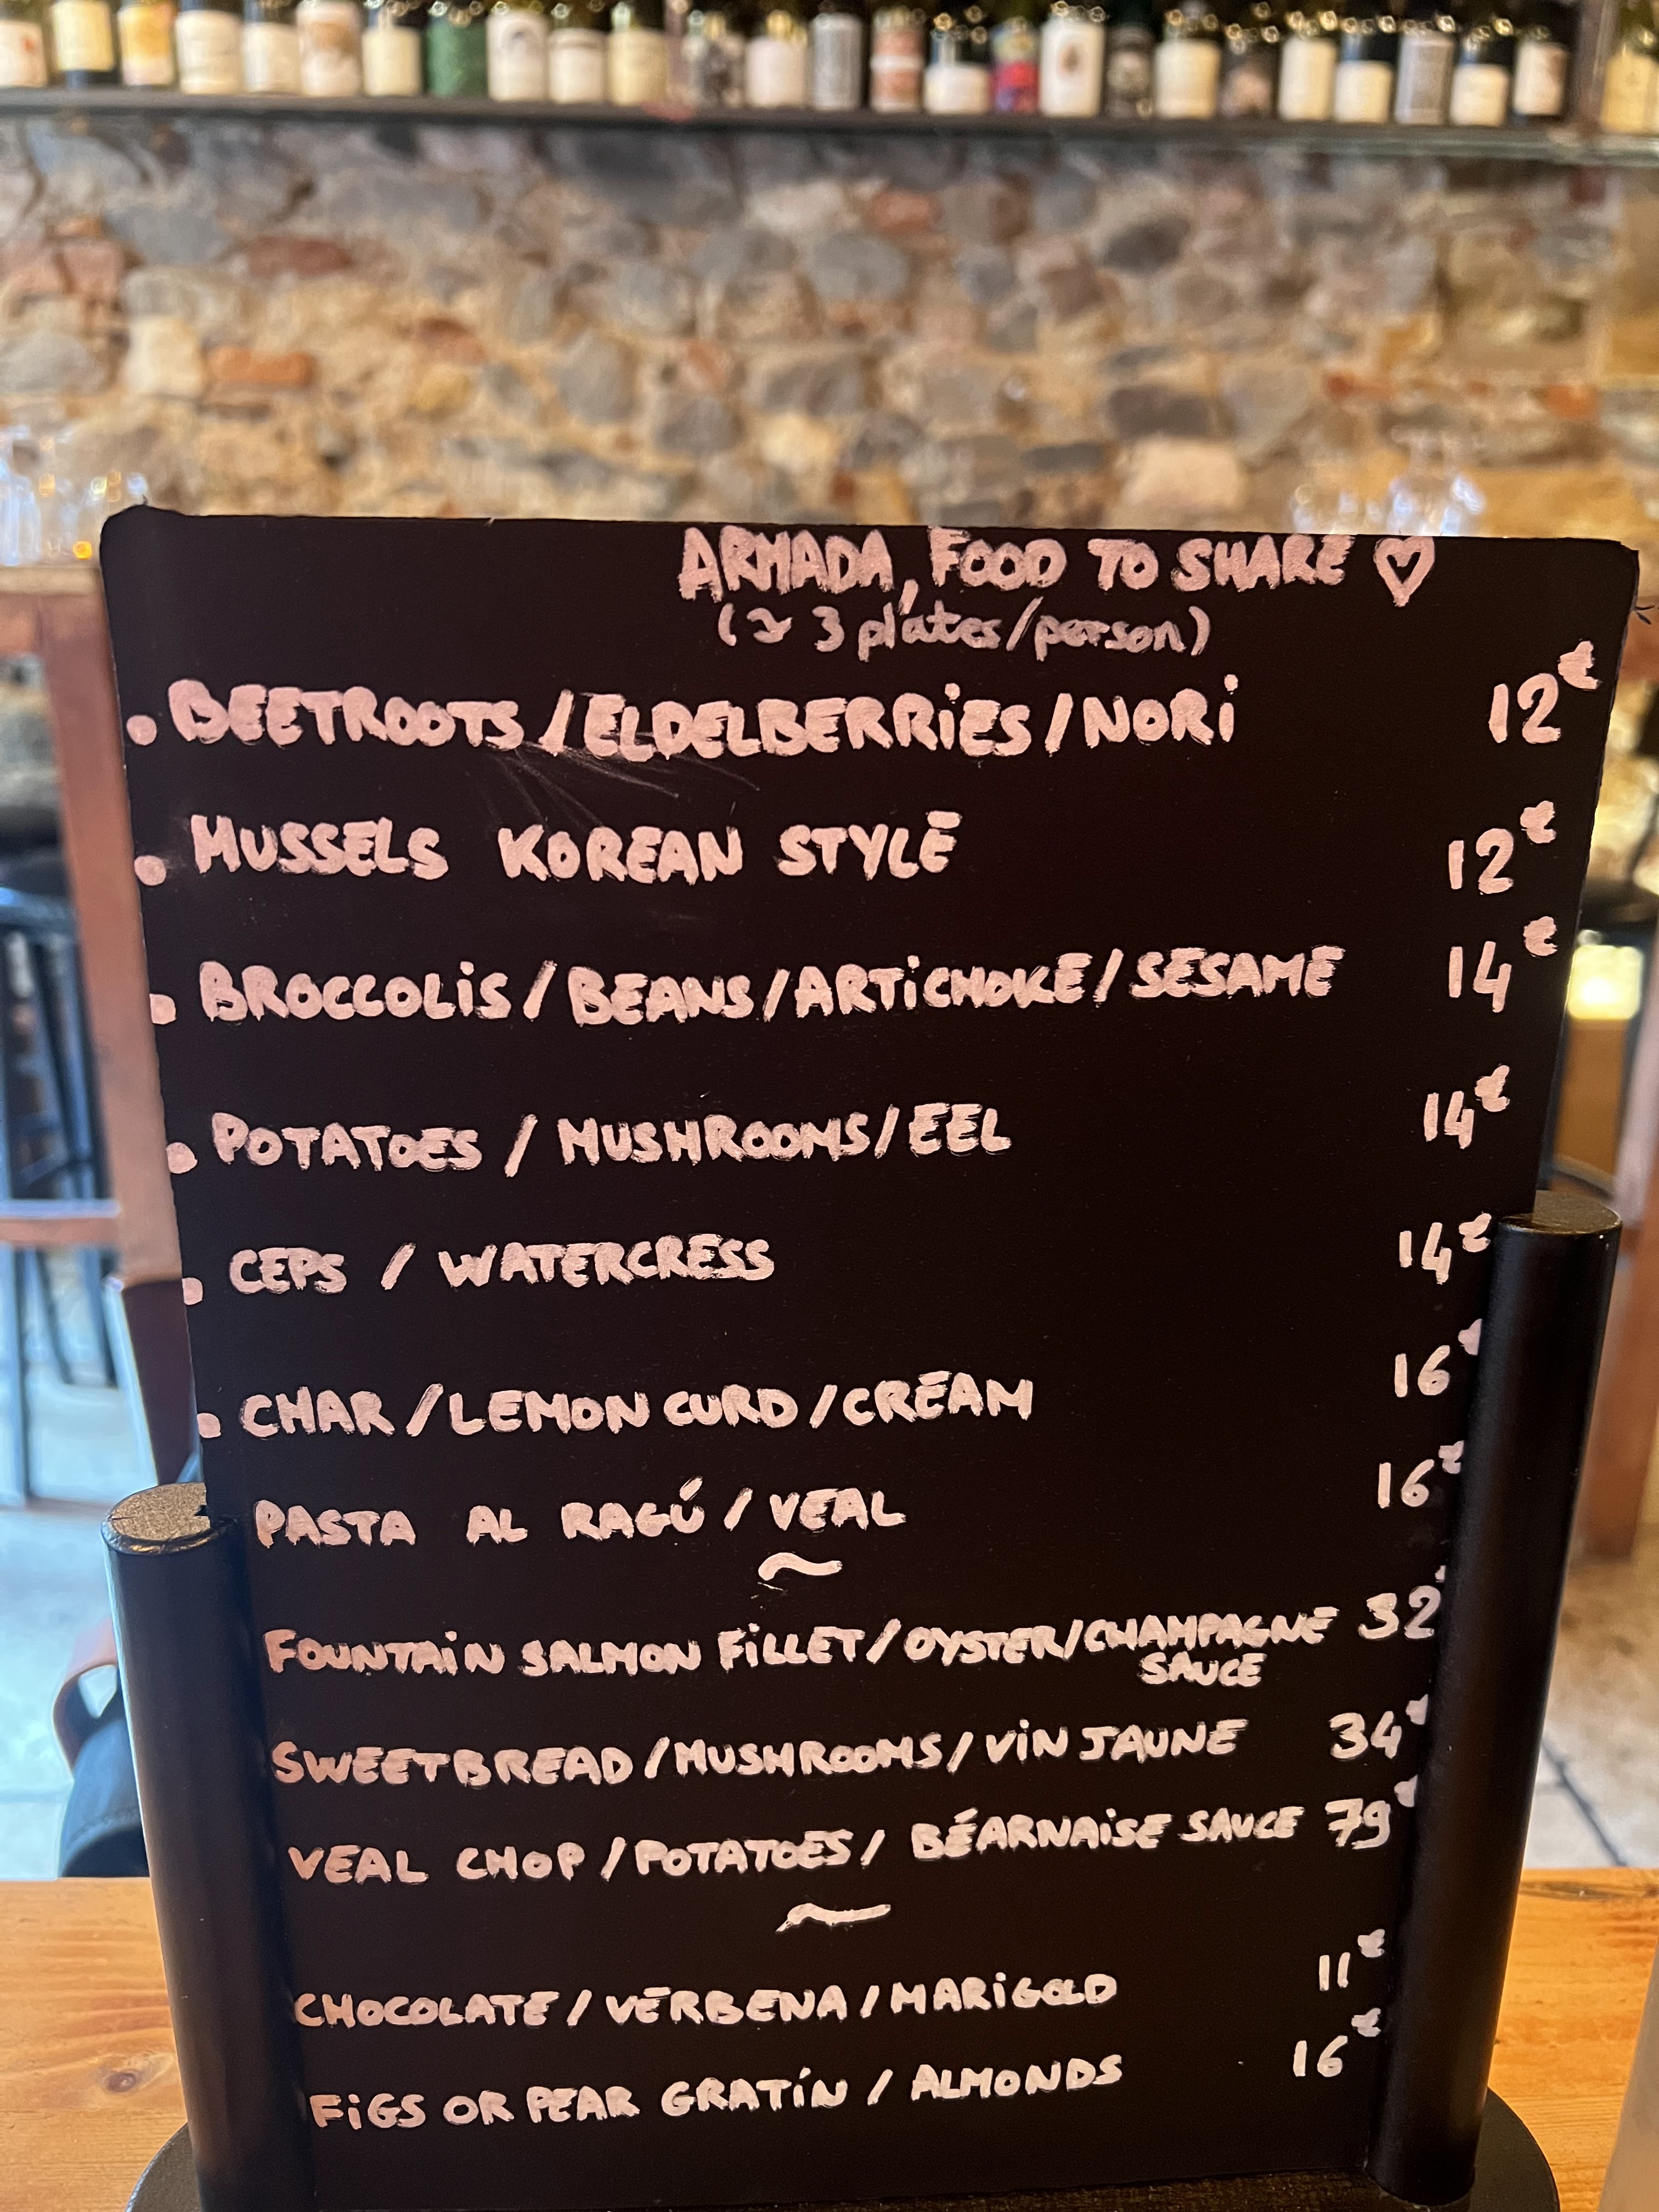 ARMADA, FOOD TO SHARE ♡
(~ 3 plates/person)
• BEETROOTS / ELDELBERRIES / NORI 12€
• MUSSELS KOREAN STYLE 12€
• BROCCOLIS / BEANS / ARTICHOKE / SESAME 14€
• POTATOES / MUSHROOMS / EEL 14€
• CEPS / WATERCRESS 14€
• CHAR / LEMON CURD / CREAM 16€
PASTA AL RAGÚ / VEAL 16€
~
FOUNTAIN SALMON FILLET / OYSTER / CHAMPAGNE 32€
SAUCE
SWEETBREAD / MUSHROOMS / VIN JAUNE 34€
VEAL CHOP / POTATOES / BÉARNAISE SAUCE 79€
~
CHOCOLATE / VERBENA / MARIGOLD 11€
FIGS OR PEAR GRATIN / ALMONDS 16€